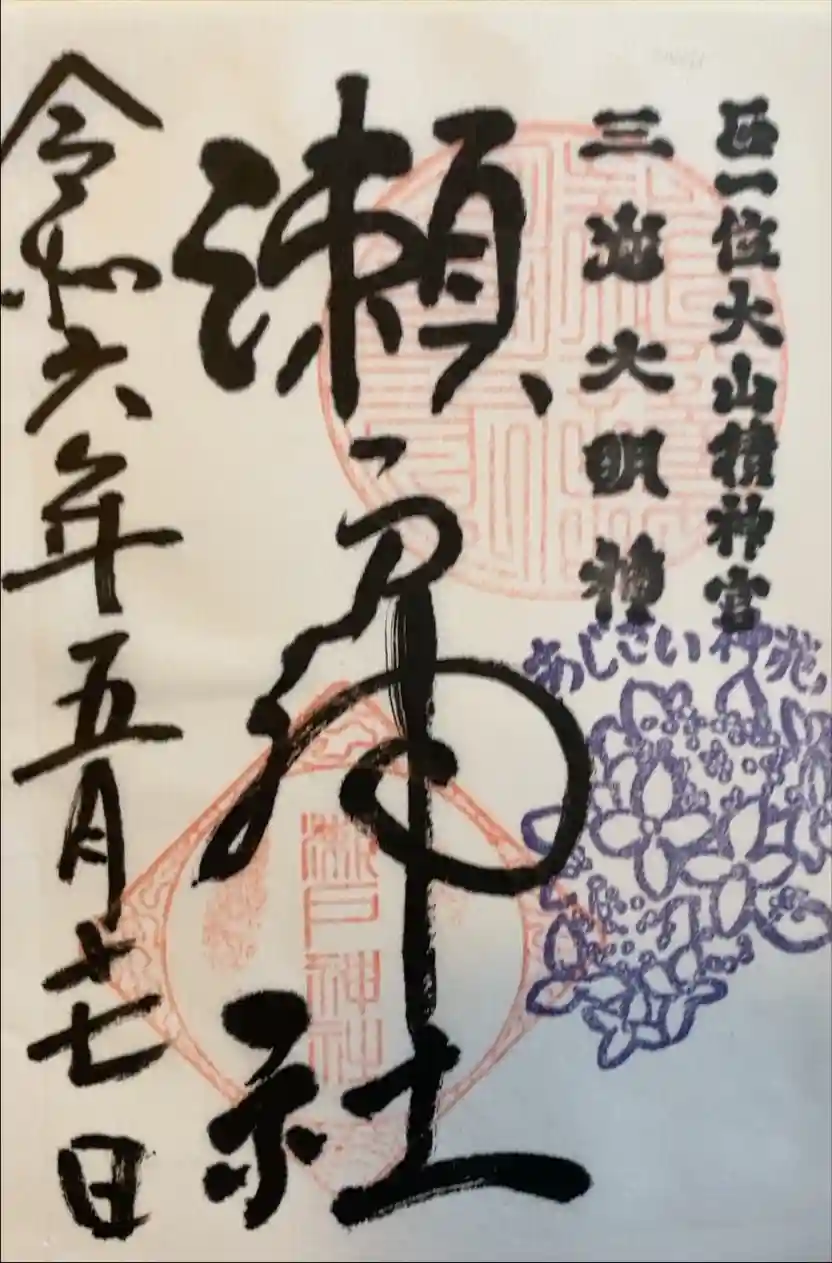 正一位大山積神宮
三嶋大明神
あじさい神苑
瀬戸神社
瀬戸神社
令和六年五月十七日